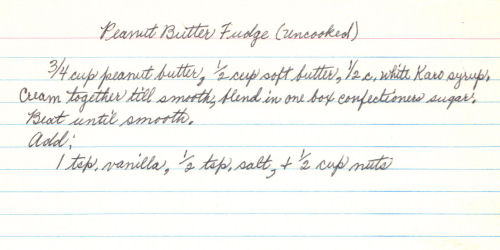 Peanut Butter Fudge (uncooked)
3/4 cup peanut butter, 1/2 cup soft butter, 1/2 c. white Karo syrup.
Cream together till smooth, blend in one box confectioners sugar.
Beat until smooth.
Add:
1 tsp. vanilla, 1/2 tsp. salt, + 1/2 cup nuts